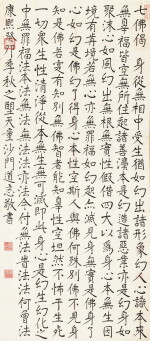 七佛偈 身從無相中受生猶如幻出諸形象幻人心識本來
無辠福皆空無所住起諸善法本是幻造諸惡業亦是幻身如
聚沫心如風幻出無根無實性假借四大以為身心本無生因
境有前境若無心亦無罪福如幻起亦滅見身無實是佛身了
心如幻是佛幻了得身心本性空斯人與佛何殊別佛不見身
知是佛若實有知別無佛智者能知罪性空坦然不怖于生死
一切眾生性清淨從本無生無可滅即此身心是幻生幻化之
中無罪福法本法無法無法法亦法今付無法時法法何曾法
康熙季秋之天童沙門道忞敬書